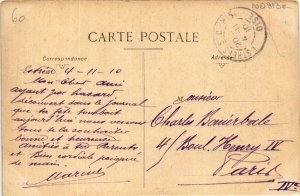 60
CARTE POSTALE
Correspondance
Adresse
4-11-10
Mon cher ami
ayant par hasard
découvert dans le journal
que ta fête tombait
aujourd'hui nous nous
te la souhaite
bonne et heureuse
amitiés à tes Parents
et Bien cordiale poignée
de main
Marius
Monsieur
Charles
4, Boul. Henry IV
Paris
IVe